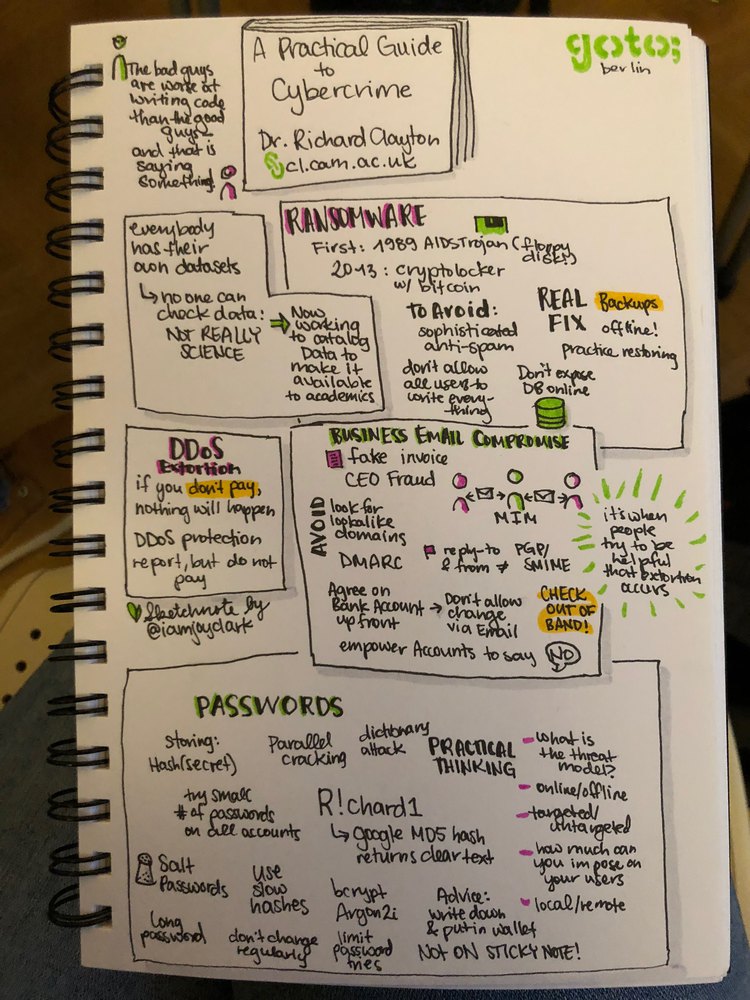 The bad guys
are worse at
writing code
than the good
guys
and that is
saying
something!
A Practical Guide
to
Cybercrime
Dr. Richard Clayton
cl.cam.ac.uk
goto;
berlin
everybody
has their
own datasets
↳ no one can
check data:
NOT REALLY
SCIENCE
⇒ Now
working
to catalog
Data to
make it
available
to academics
RANSOMWARE
First: 1989 AIDSTrojan (floppy
disk!)
2013: cryptolocker
w/ bitcoin
To Avoid:
sophisticated
anti-spam
don't allow
all users to
write every-
thing
REAL
FIX
Backups
offline!
practice restoring
Don't expose
DB online
DDoS
Extortion
if you don't pay,
nothing will happen
DDoS protection
report, but do not
pay
Sketchnote by
@iamjoyclark
BUSINESS EMAIL COMPROMISE
fake invoice
CEO Fraud
MIM
AVOID
look for
lookalike
domains
DMARC
reply-to
& from ≠
PGP/
SMIME
Agree on
Bank Account
up front
→ Don't allow
change
via Email
CHECK
OUT OF
BAND!
empower Accounts to say NO
it's when
people
try to be
helpful
that extortion
occurs
PASSWORDS
Storing:
Hash(secret)
Parallel
cracking
dictionary
attack
PRACTICAL
THINKING
- what is
the threat
model?
- online/offline
- targeted/
untargeted
- how much can
you impose on
your users
- local/remote
try small
# of passwords
on all accounts
R!chard1
↳ google MD5 hash
returns clear text
Salt
Passwords
use
slow
hashes
bcrypt
Argon2i
Advice:
write down
& put in wallet
NOT ON STICKY NOTE!
Long
password
don't change
regularly
limit
password
tries